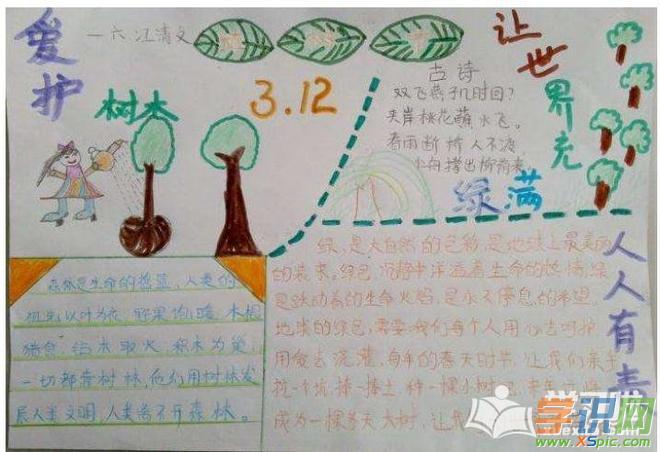 爱护
树木
一六.江清文
3.12
让世界充
满
绿
古诗
双飞燕子几时回?
夹岸桃花蘸水飞。
春雨断桥人不渡,
小舟撑出柳荫来。
人人有责
森林是生命的摇篮,人类的
祖先以叶为衣,
一切都靠树林,他们用树林发
展人类文明,人类离不开森林。
绿,是大自然的色彩,是地球上最美丽
的装束。绿色 沉静中洋溢着生命的
是跃动着的生命火焰,是永不停息的希望。
地球的绿色,需要我们每个人用心去呵护
用爱去浇灌,每年的春天时节,让我们亲手
挖一个坑,捧一捧土,种一棵小树
成为一棵参天大树,让我
学识网
www.XSpic.com